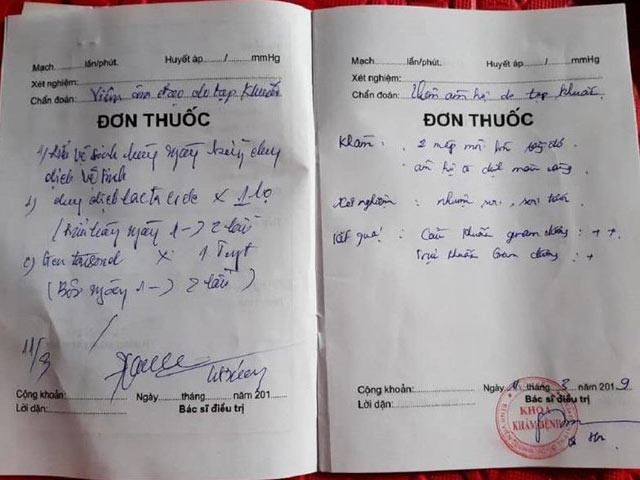 Mạch............lần/phút. Huyết áp......./.......mmHg
Xét nghiệm:
Chẩn đoán: Viêm âm đạo do tạp khuẩn
ĐƠN THUỐC
vệ sinh hàng ngày bằng dung
dịch vệ sinh
1) dung dịch lactacide x 1 lọ
ngày 1 -> 2 lần
2) x 1 Tuýp
(Bôi ngày 1 -> 2 lần)
11/3
Cộng khoản:
Ngày.......tháng.......năm 201...
Lời dặn:
Bác sĩ điều trị
Mạch............lần/phút. Huyết áp......./.......mmHg
Xét nghiệm:
Chẩn đoán: Viêm âm hộ do tạp khuẩn.
ĐƠN THUỐC
Khám: 2 mép đỏ
âm hộ
Xét nghiệm: nhuộm soi, soi tươi
Kết quả: Cầu khuẩn gram dương: ++
Trực khuẩn Gram dương: +
Cộng khoản:
Ngày 11 tháng 3 năm 2019
Lời dặn:
Bác sĩ điều trị
KHOA
KHÁM BỆNH